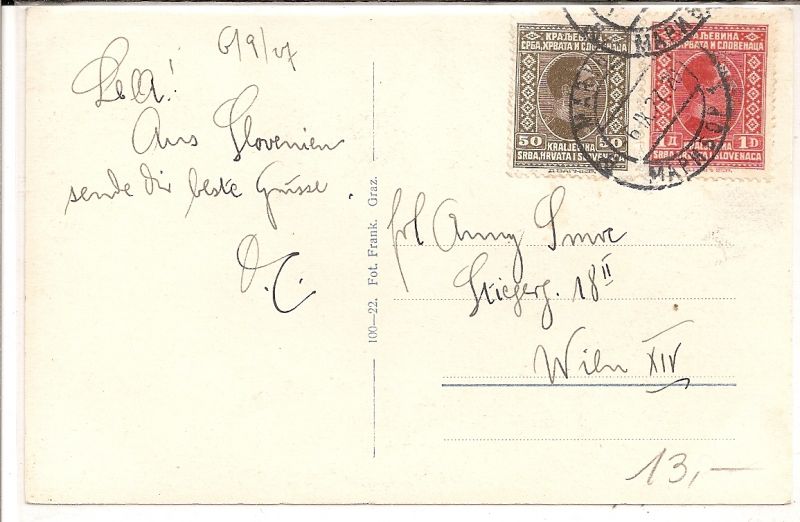 6/9/27
Aus Slovenien
sende dir beste Grüsse.
100—22. Fot. Frank. Graz.
КРАЉЕВИНА
СРБА, ХРВАТА И СЛОВЕНАЦА
50 50
KRALJEVINA
SRBA, HRVATA I SLOVENACA
КРАЉЕВИНА
СРБА, ХРВАТА И СЛОВЕНАЦА
1Д 1D
KRALJEVINA
SRBA, HRVATA I SLOVENACA
Frl Anny Smrc
Stiegerg. 18 II
Wien XIV
13,—